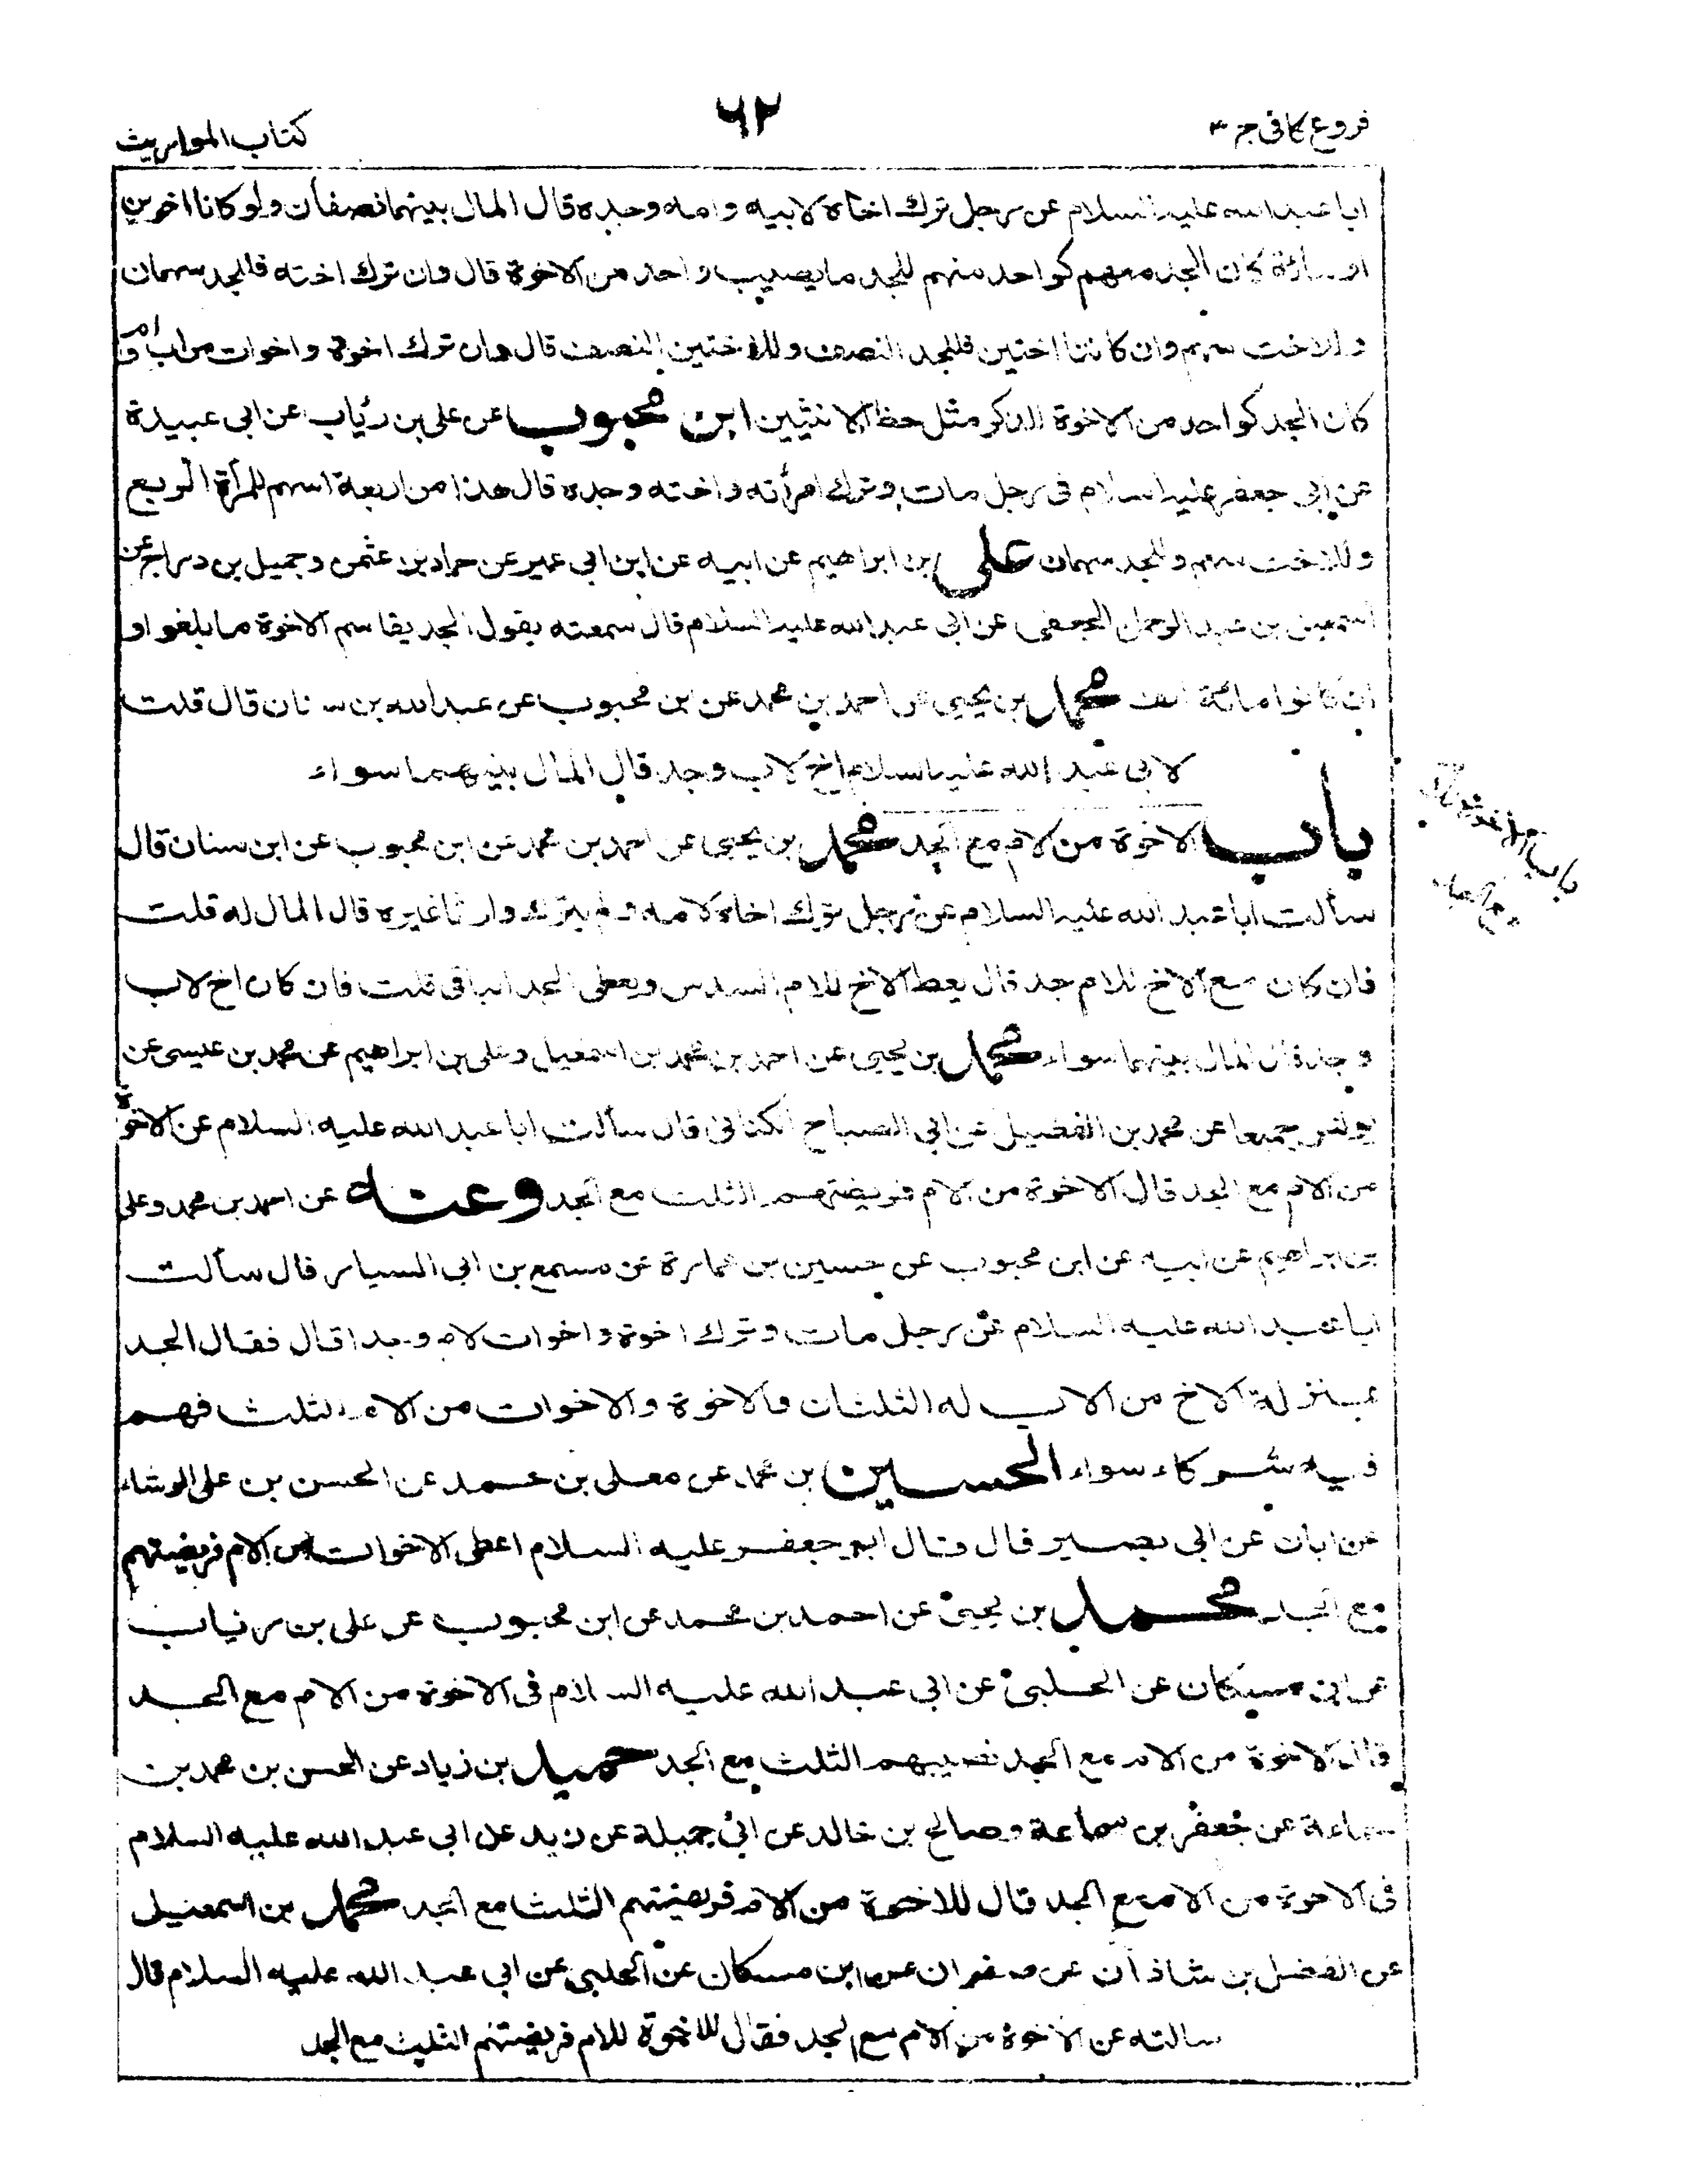 فروع كافى جز ٣
٦٢
كتاب المواريث
ابا عبد الله عليه السلام عن رجل ترك اخاه لابيه وامه وجده قال المال بينهما نصفان ولو كانا اخوين
او مائة كان الجد معهم كواحد منهم للجد ما يصيب واحد من الاخوة قال وان ترك اخته فللجد سهمان
وللاخت سهم وان كانتا اختين فللجد النصف وللاختين النصف قال وان ترك اخوة واخوات من اب وام
كان الجد كواحد من الاخوة للذكر مثل حظ الانثيين ابن محبوب عن على بن رئاب عن ابى عبيدة
عن ابى جعفر عليه السلام فى رجل مات وترك امرأته واخته وجده قال هذا من اربعة اسهم للمرأة الربع
وللاخت سهم وللجد سهمان على بن ابراهيم عن ابيه عن ابن ابى عمير عن حماد بن عثمن وجميل بن دراج عن
اسمعيل بن عبد الرحمن الجعفى عن ابى عبد الله عليه السلام قال سمعته يقول الجد يقاسم الاخوة ما بلغوا و
ان كانوا مائة الف محمد بن يحيى عن احمد بن محمد عن ابن محبوب عن عبد الله بن سنان قال قلت
لابى عبد الله عليه السلام اخ لاب وجد قال المال بينهما سواء
باب الاخوة من الام مع الجد محمد بن يحيى عن احمد بن محمد عن ابن محبوب عن ابن سنان قال
باب الاخوة من الام
مع الجد
سألت ابا عبد الله عليه السلام عن رجل ترك اخاه لامه ولم يترك وارثا غيره قال المال له قلت
فان كان مع الاخ للام جد قال يعطى الاخ للام السدس ويعطى الجد الباقى قلت فان كان اخ لاب
وجد قال المال بينهما سواء محمد بن يحيى عن احمد بن محمد بن اسمعيل وعلى بن ابراهيم عن محمد بن عيسى عن
يونس جميعا عن محمد بن الفضيل عن ابى الصباح الكنانى قال سألت ابا عبد الله عليه السلام عن الاخوة
من الام مع الجد قال الاخوة من الام فريضتهم الثلث مع الجد وعنه عن احمد بن محمد وعلى
بن ابراهيم عن ابيه عن ابن محبوب عن حسين بن عمارة عن مسمع بن ابى السيار قال سألت
ابا عبد الله عليه السلام عن رجل مات وترك اخوة واخوات لام وجدا قال فقال الجد
بمنزلة الاخ من الاب له الثلثان والاخوة والاخوات من الام الثلث فهم
فيه شركاء سواء الحسين بن محمد عن معلى بن محمد عن الحسن بن على الوشاء
عن ابان عن ابى بصير قال قال ابو جعفر عليه السلام اعطى الاخوات من الام فريضتهم
مع الجد محمد بن يحيى عن احمد بن محمد عن ابن محبوب عن على بن رئاب
عن ابن مسكان عن الحلبى عن ابى عبد الله عليه السلام فى الاخوة من الام مع الجد
قال الاخوة من الام مع الجد نصيبهم الثلث مع الجد حميد بن زياد عن الحسن بن محمد بن
سماعة عن جعفر بن سماعة وصالح بن خالد عن ابى جميلة عن زيد عن ابى عبد الله عليه السلام
فى الاخوة من الام مع الجد قال للاخوة من الام فريضتهم الثلث مع الجد محمد بن اسمعيل
عن الفضل بن شاذان عن صفوان عن ابن مسكان عن الحلبى عن ابى عبد الله عليه السلام قال
سالته عن الاخوة من الام مع الجد فقال للاخوة للام فريضتهم الثلث مع الجد